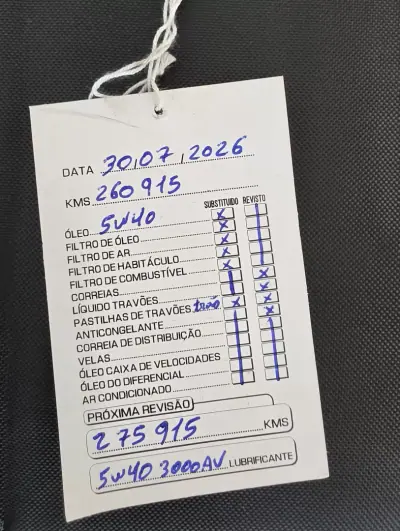 DATA 30,07,2026
KMS 260 915
SUBSTITUIDO REVISTO
ÓLEO 5W40 X
FILTRO DE ÓLEO X
FILTRO DE AR X
FILTRO DE HABITÁCULO X
FILTRO DE COMBUSTÍVEL X
CORREIAS X
LÍQUIDO TRAVÕES X
PASTILHAS DE TRAVÕES X X
ANTICONGELANTE X
CORREIA DE DISTRIBUIÇÃO
VELAS
ÓLEO CAIXA DE VELOCIDADES
ÓLEO DO DIFERENCIAL
AR CONDICIONADO
PRÓXIMA REVISÃO
275915 KMS
5W40 3000AV LUBRIFICANTE